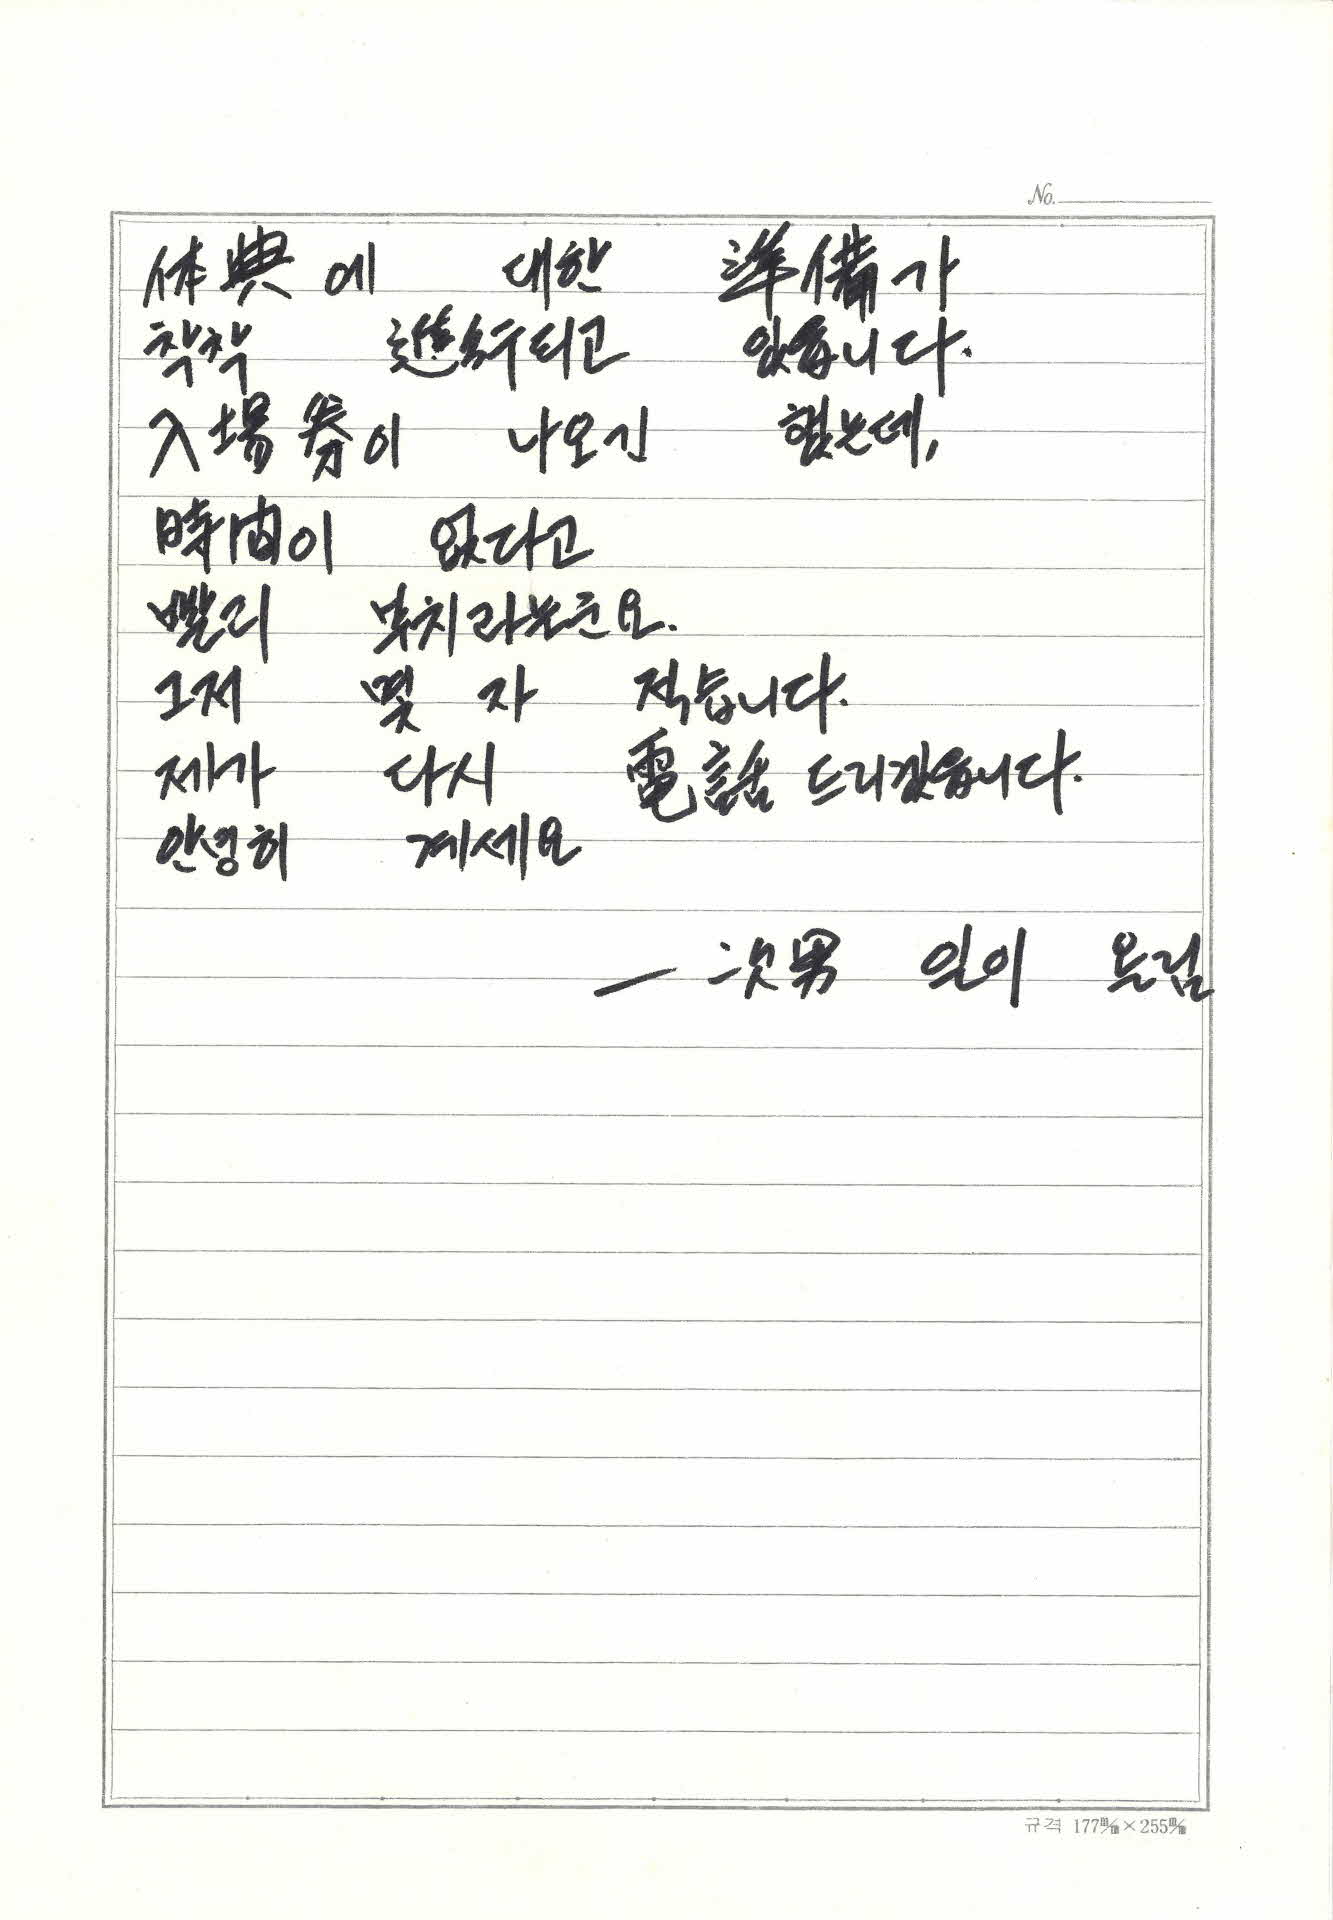 No.
休典에 대한 準備가
착착 進行되고 있읍니다.
入場券이 나오긴 했는데,
時间이 없다고
빨리 부치라는군요.
그저 몇 자 적습니다.
제가 다시 電話 드리겠읍니다.
안녕히 계세요
— 次男 일이 올림
규격 177㎜×255㎜